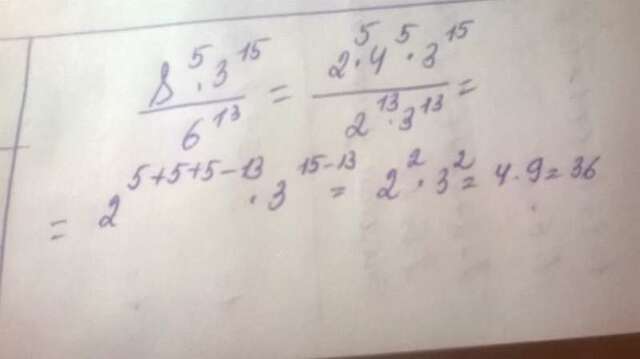 8^5 · 3^15 / 6^13 = 2^5 · 4^5 · 3^15 / 2^13 · 3^13 =
= 2^5+5+5-13 · 3^15-13 = 2^2 · 3^2 = 4 · 9 = 36